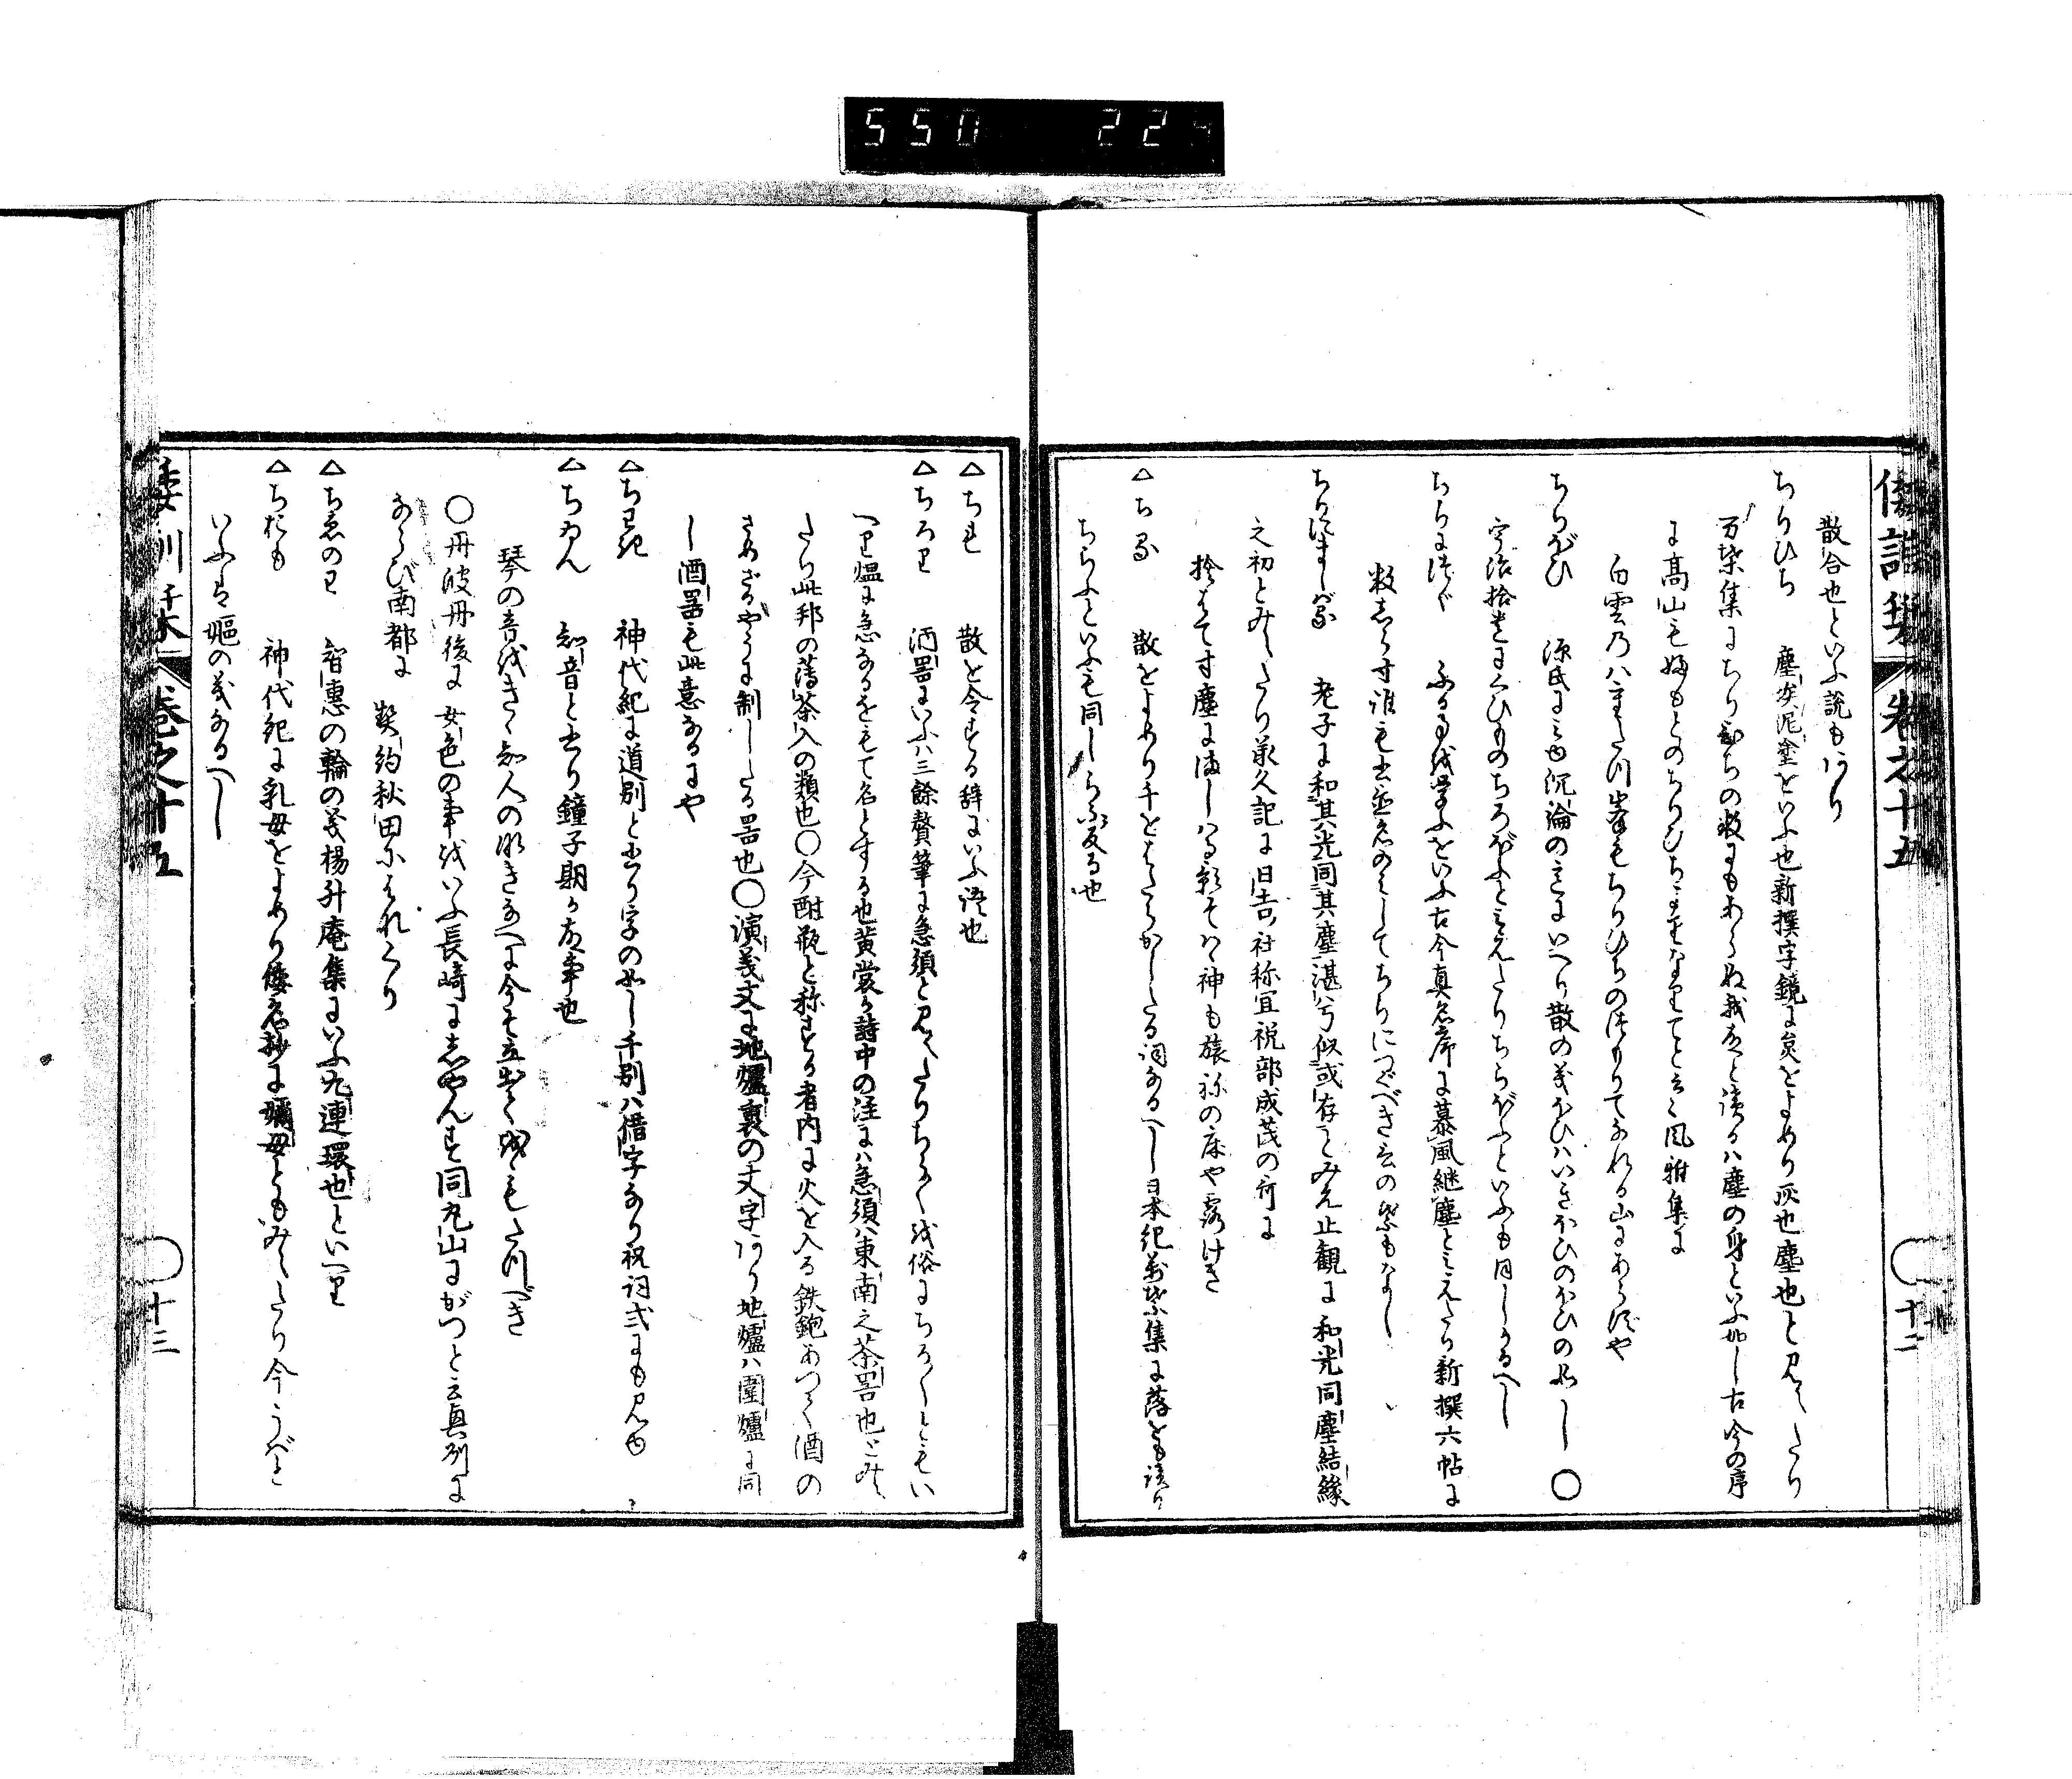 550 224
倭訓栞 巻之十五 十二
散合也といふ説もあり
ちりひぢ 塵埃泥塗をいふ也新撰字鏡に炱をよめり灰也塵也と見えたり
万葉集にちりひぢの数にもあらぬ我と読るハ塵の身といふ如し古今の序
に高山も麓のちりひぢよりなりてと云々風雅集に
白雲のハまたつ峯もちりひぢのつもりてなれる山にあらずや
ちりぼひ 源氏に見ゆ沉淪の意にいへり散の義ぼひハいきほひのほひの如し ○
宇治拾遺にくひものちろぼふとみえたりちらぼふといふも同しかるべし
ちりにつぐ ふる事を学ふをいふ古今真名序に慕風継塵とみえたり新撰六帖に
数しらす誰も むかしのあとしてちりにつぐべき言の葉もなし
ちりにまじる 老子に和其光同其塵湛兮似或存とみえ止観に和光同塵結縁
之初とみえたり承久記に日吉社祢宜祝部成茂の哥に
捨はてす塵にましハる影そハ神も旅祢の床や露けき
△ちる 散をよめり千をはたらかしたる詞なるべし日本紀万葉集に落をも読り
ちらふといふも同しらふ反る也
△ちれ 散を令する辞にいふ語也
△ちろり 酒器にいふハ三餘贅筆に急須と見えたりちろく俗にちろしともい
へり煴に急なるをもて名とする也黄裳か詩中の注にハ急須ハ東南之茶器也とみえ
たり此邦の薄茶入の類也○今酎瓶と称する者内に火を入る鉄鉋あつて酒の
さめざるやうに制したる器也○演義文に地爐裏の文字あり地爐ハ圍爐に同
し酒器も此意なるにや
△ちわき 神代紀に道別と書り字の如し千別ハ借字なり祝詞式にも見ゆ
△ちゐん 知音と書り鐘子期か故事也
琴の音をきく知人のなきなへに今そ立出てをもたつべき
○丹波丹後に女色の事をいふ長崎にしやんす同丸山にがつと云奥列に
ならび南都に 契約秋田にはれくり
△ちゑのわ 智惠の輪の義楊升庵集にいふ九連環也といへり
△ちおも 神代紀に乳母をよめり倭名抄に嬭母ともみえたり今うばと
いふは嫗の義なるべし
倭訓栞 巻之十五 十三